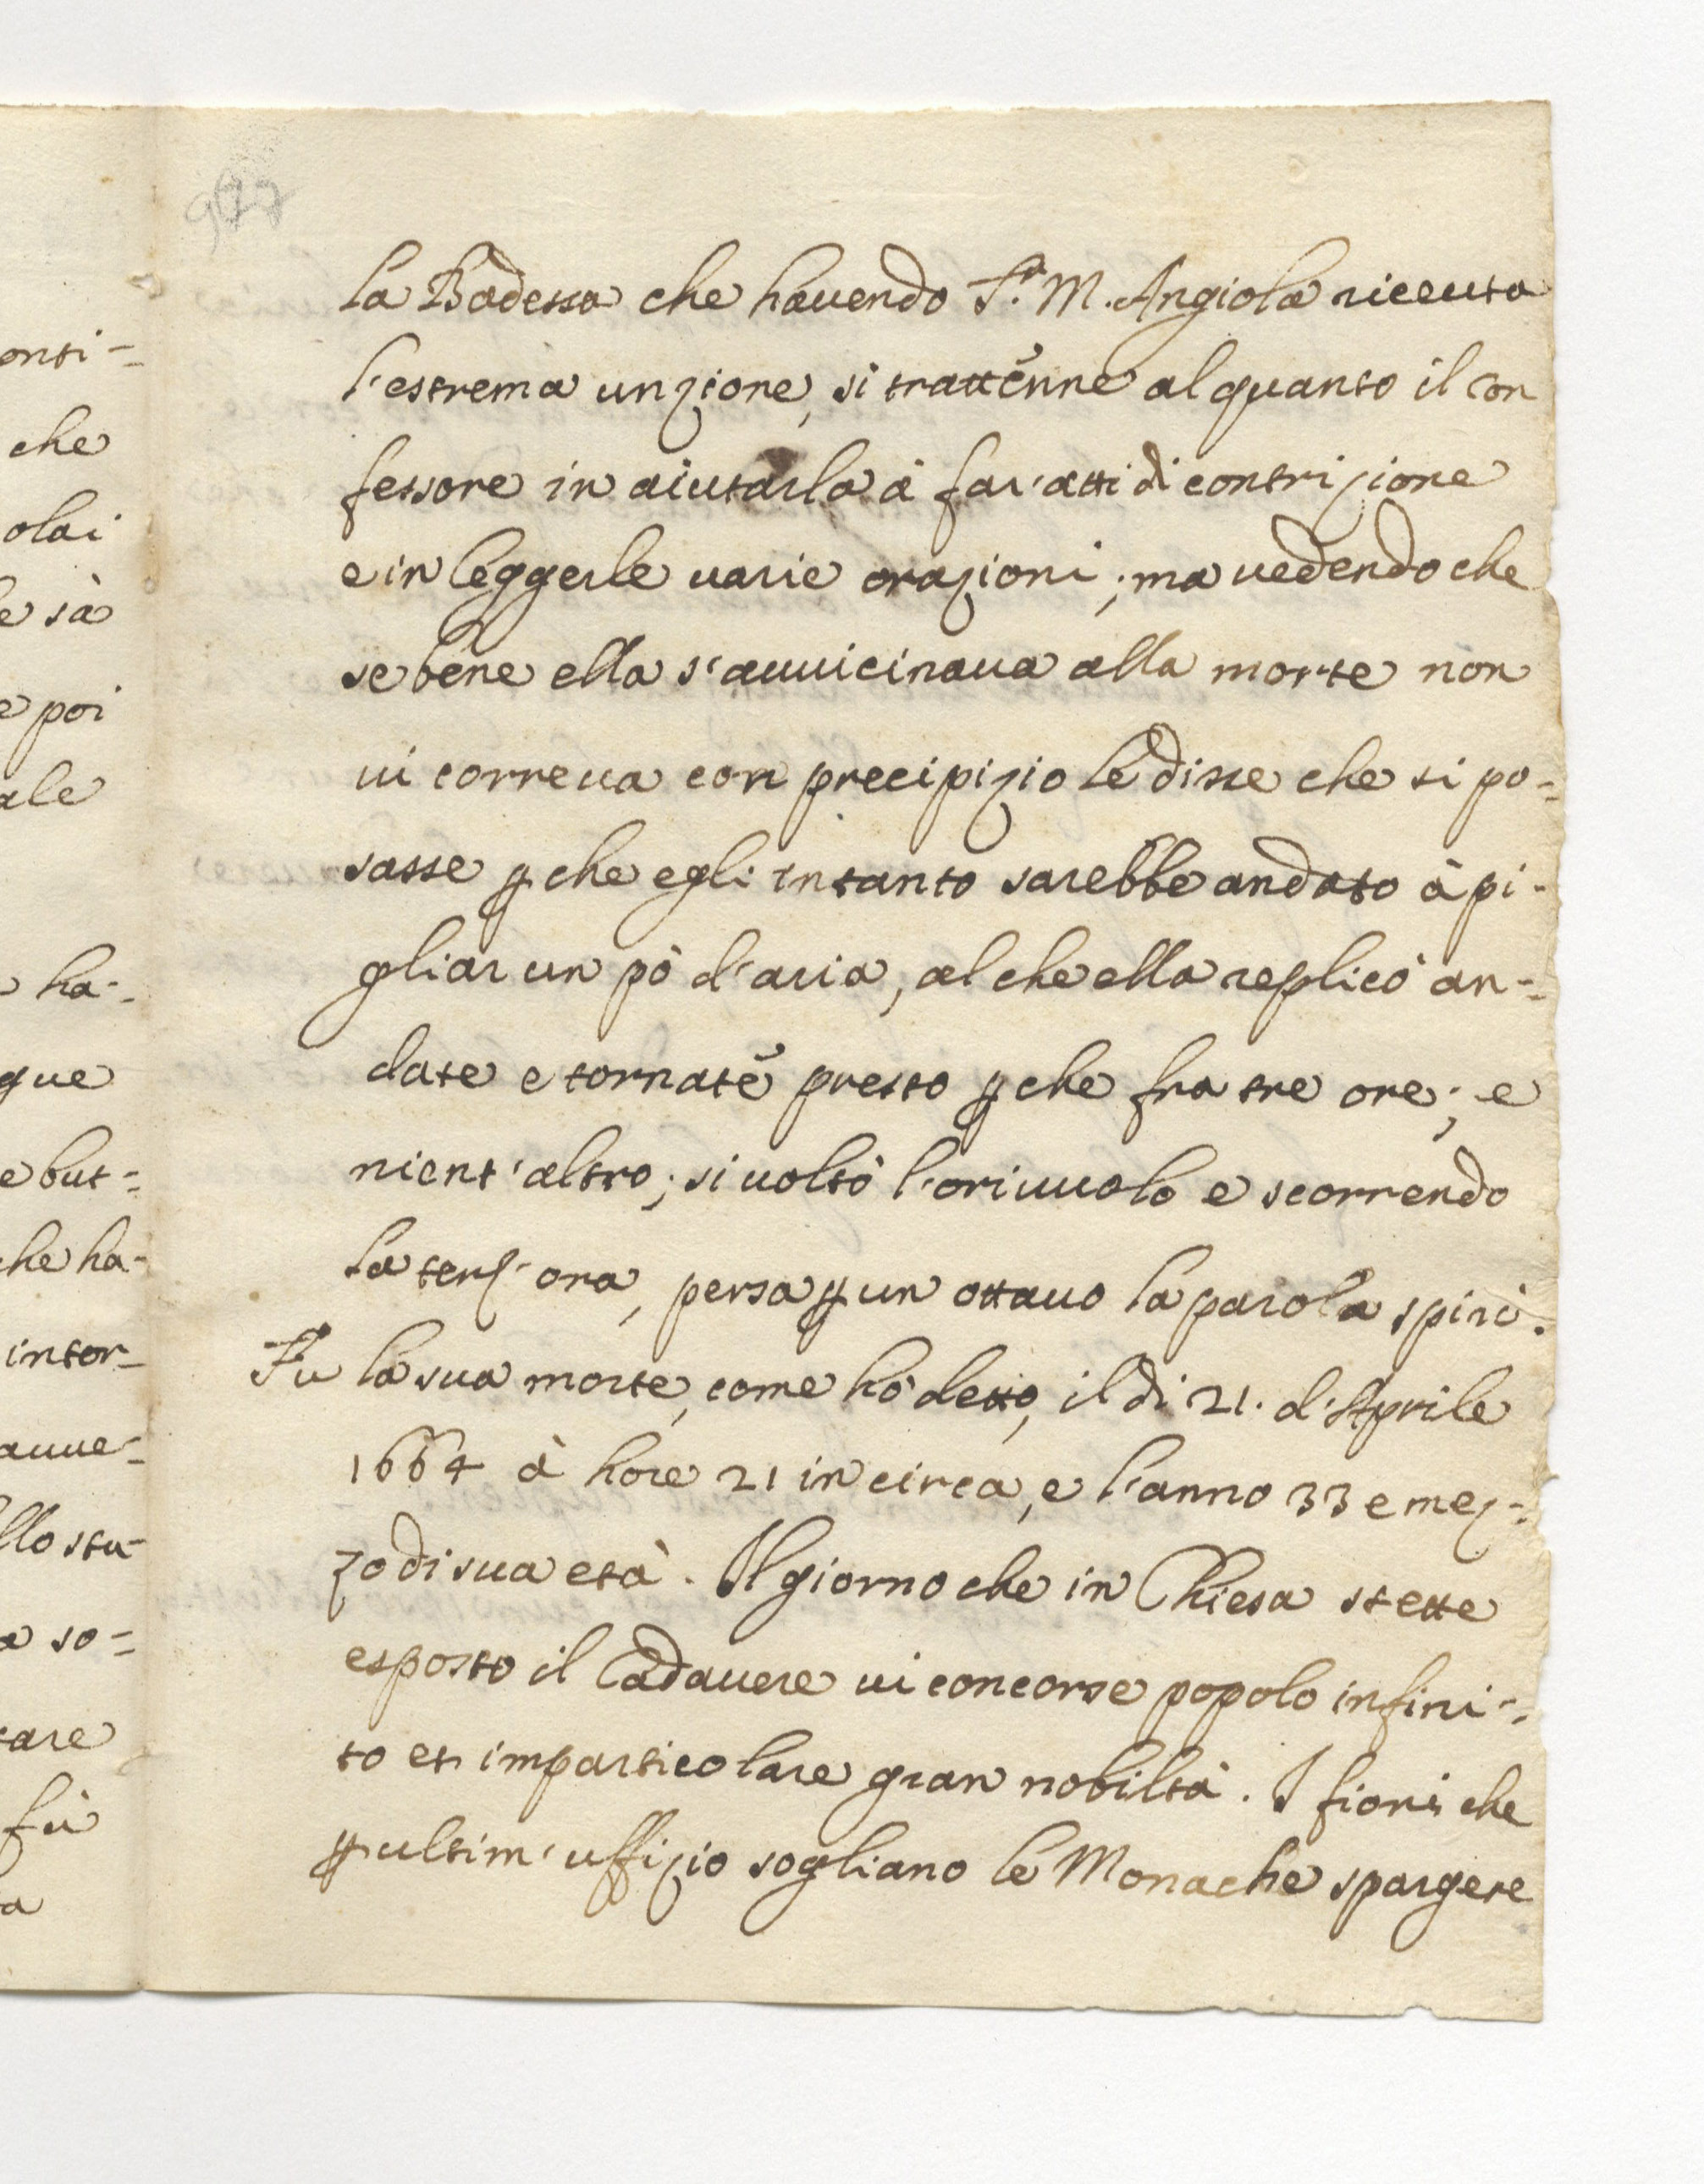 977
la Badessa che hauendo S.r M. Angiola riceuta
l'estrema unzione, si trattenne alquanto il con
fessore in aiutarla à far'atti di contrizione
e in leggerle uarie orazioni; ma uedendo che
se bene ella s'auuicinaua alla morte non
ui correua con precipizio le disse che si po-
sasse ꝑ che egli intanto sarebbe andato à pi-
gliar un pò d'aria, al che ella replicò an-
date e tornate presto ꝑ che fra tre ore; e
nient'altro; si uoltò l'oriuuolo e scorrendo
la terz'ora, persa ꝑ un ottauo la parola spirò.
Fu la sua morte, come hò detto, il dì 21. d'Aprile
1664 à hore 21 in circa, e l'anno 33 e mez-
zo di sua età. Il giorno che in Chiesa stette
esposto il Cadauere ui concorse popolo infini-
to et imparticolare gran nobiltà. I fiori che
ꝑ ultim'uffizio sogliano le Monache spargere
onti-
che
olai
e sà
e poi
ale
ha-
que
e but-
he ha-
intor-
auue-
llo stu-
a so-
tare
fù
a